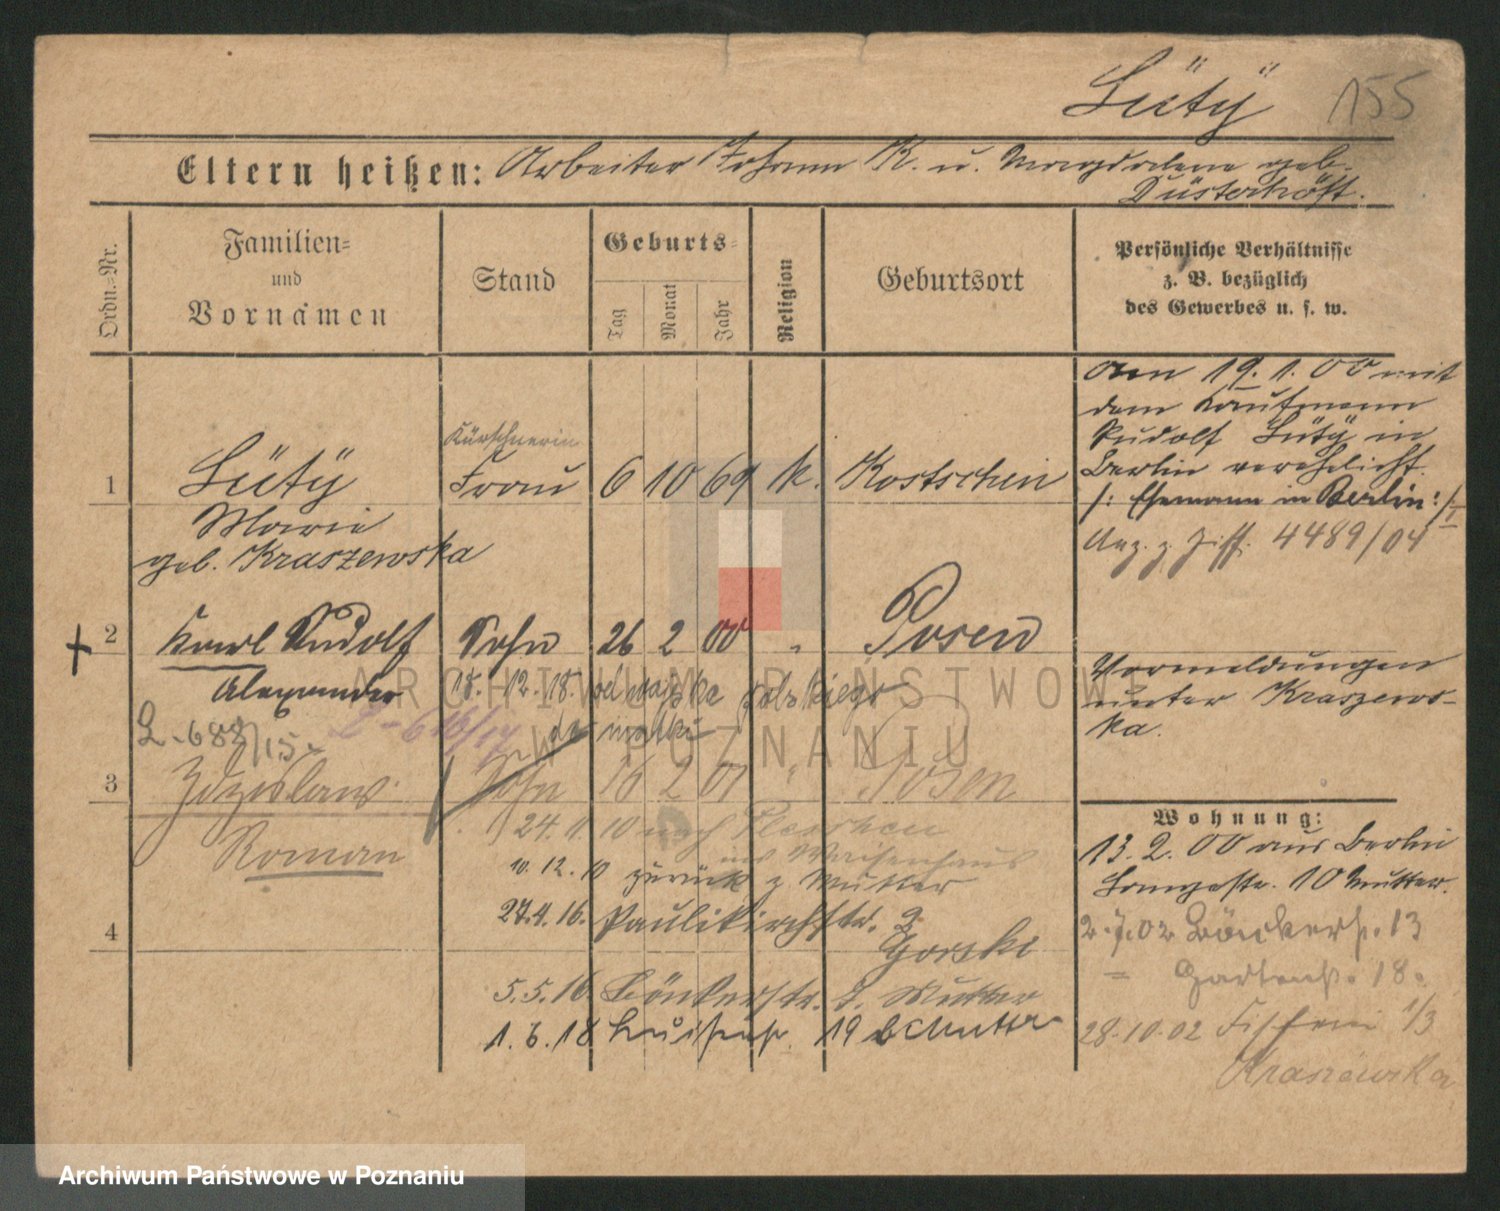 Lüty 155
Eltern heißen: Arbeiter Johann K. u. Magdalena geb.
Düsterhöft.
Ordn.-Nr.
Familien-
und
Vornamen
Stand
Geburts-
Tag
Monat
Jahr
Religion
Geburtsort
Persönliche Verhältnisse
z. B. bezüglich
des Gewerbes u. s. w.
am 19. 1. 00 mit
dem Kaufmann
Rudolf Lüty in
Berlin verehelicht.
/: Ehemann in Berlin :/
Anz. z. Ziff. 4489/04
Kürschnerin
1 Lüty Frau 6 10 69 k. Kostschin
Marie
geb. Kraszewska
2 Karl Rudolf Sohn 26 2 00 " Posen
Alexander 18. 12. 18. do wojska polskiego
Vormeldungen
unter Kraszews-
ka.
3 Zdzislaw Sohn 16 2 01 " Posen
Roman
24. 11. 10 nach Pleschen
ins Waisenhaus
10. 12. 10 zurück z Mutter
27. 4. 16. Paulikirchstr. 2
Gorski
4
5. 5. 16 Bäckerstr. Mutter
1. 6. 18 Luisenstr. 19 b Mutter
Wohnung:
13. 2. 00 aus Berlin
Langestr. 10 Mutter.
2. 7. 02 Bäckerstr. 13
= Gartenstr. 18.
28. 10. 02 Fischerei 1/3
Kraszewska
ARCHIWUM PAŃSTWOWE
W POZNANIU
Archiwum Państwowe w Poznaniu